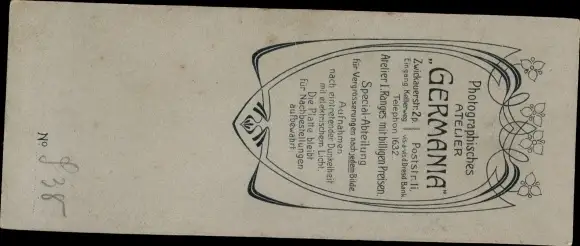 Photographisches
ATELIER
"GERMANIA"
Zwickauerstr. 2p | Poststr. 11.
Eingang Kaßbergweg | vis-à-vis d. Dresd. Bank.
Telephon 1632.
Atelier I. Ranges mit billigen Preisen.
Special-Abteilung
für Vergrösserungen nach jedem Bilde.
Aufnahmen
nach eintretender Dunkelheit
mit elektrischem Licht.
Die Platte bleibt
für Nachbestellungen
aufbewahrt.
No 838